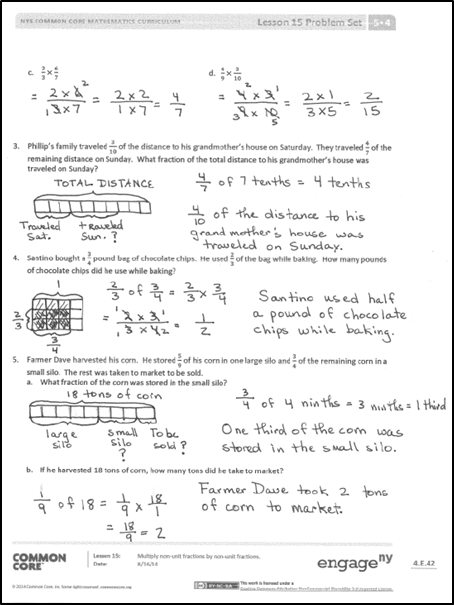 NYS COMMON CORE MATHEMATICS CURRICULUM Lesson 15 Problem Set 5•4
c. 2/3 × 6/7 d. 4/9 × 3/10
= 2 × 6 2 / 1 3 × 7 = 2 × 2 / 1 × 7 = 4/7 = 2 4 × 3 1 / 3 9 × 10 5 = 2 × 1 / 3 × 5 = 2/15
3. Phillip's family traveled 3/10 of the distance to his grandmother's house on Saturday. They traveled 4/7 of the
remaining distance on Sunday. What fraction of the total distance to his grandmother's house was
traveled on Sunday?
TOTAL DISTANCE
4/7 of 7 tenths = 4 tenths
Traveled Sat. traveled Sun.?
4/10 of the distance to his
grandmother's house was
traveled on Sunday.
4. Santino bought a 3/4 pound bag of chocolate chips. He used 2/3 of the bag while baking. How many pounds
of chocolate chips did he use while baking?
1
2/3
3/4
2/3 of 3/4 = 2/3 × 3/4
= 1 2 × 3 1 / 1 3 × 4 2 = 1/2
Santino used half
a pound of chocolate
chips while baking.
5. Farmer Dave harvested his corn. He stored 5/9 of his corn in one large silo and 3/4 of the remaining corn in a
small silo. The rest was taken to market to be sold.
a. What fraction of the corn was stored in the small silo?
18 tons of corn
large silo small silo ? To be sold ?
3/4 of 4 ninths = 3 ninths = 1 third
One third of the corn was
stored in the small silo.
b. If he harvested 18 tons of corn, how many tons did he take to market?
1/9 of 18 = 1/9 × 18/1
= 18/9 = 2
Farmer Dave took 2 tons
of corn to market.
COMMON CORE
Lesson 15: Multiply non-unit fractions by non-unit fractions.
Date:
engage ny
4.E.42
This work is licensed under a